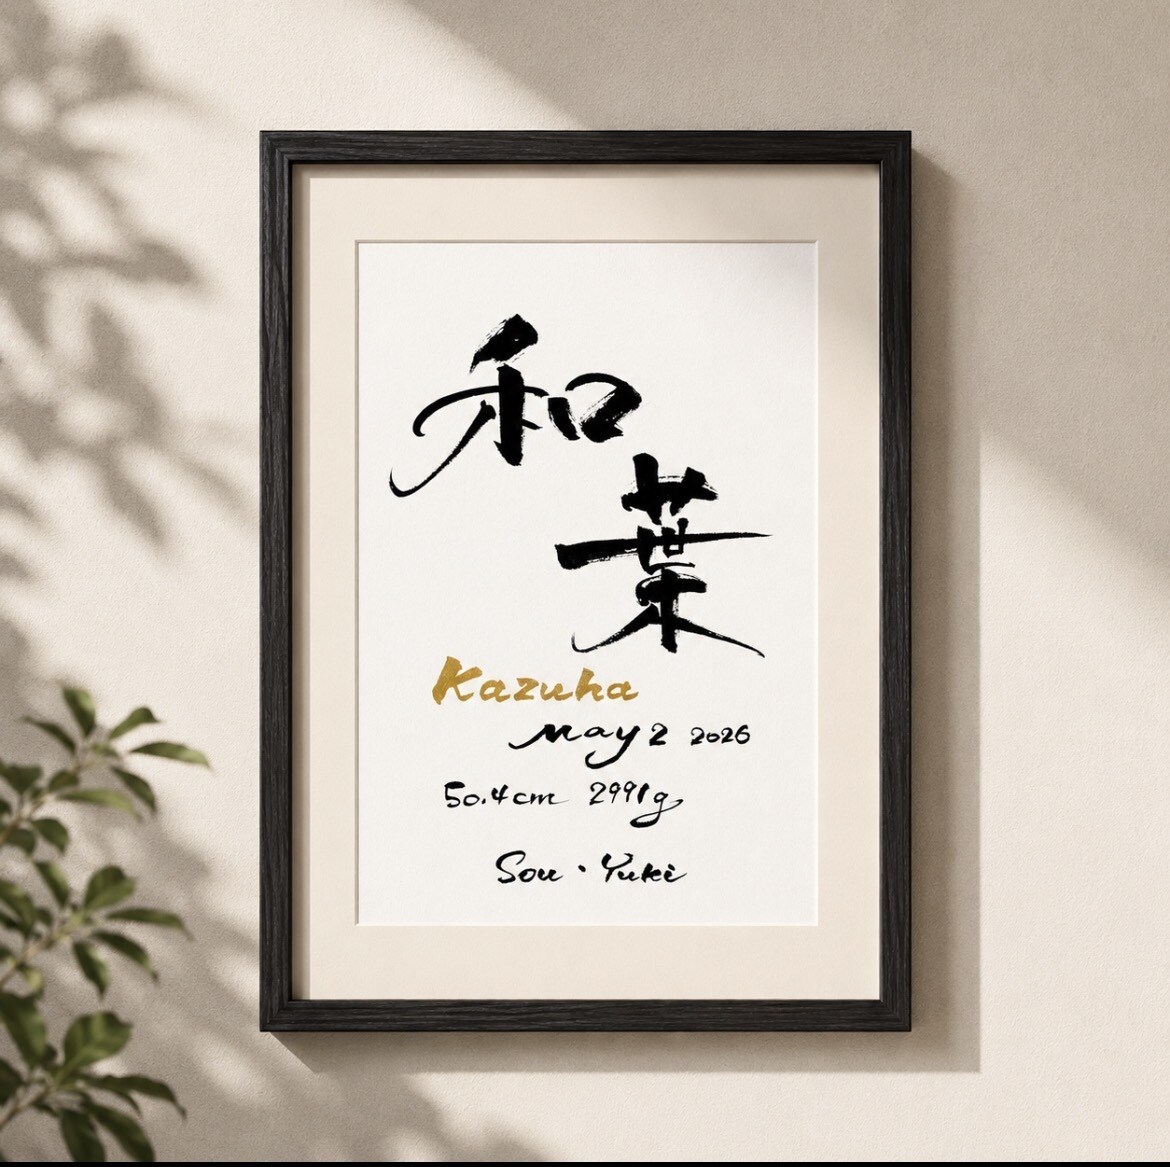 和葉
Kazuha
May 2 2026
50.4cm 2991g
Sou・Yuki